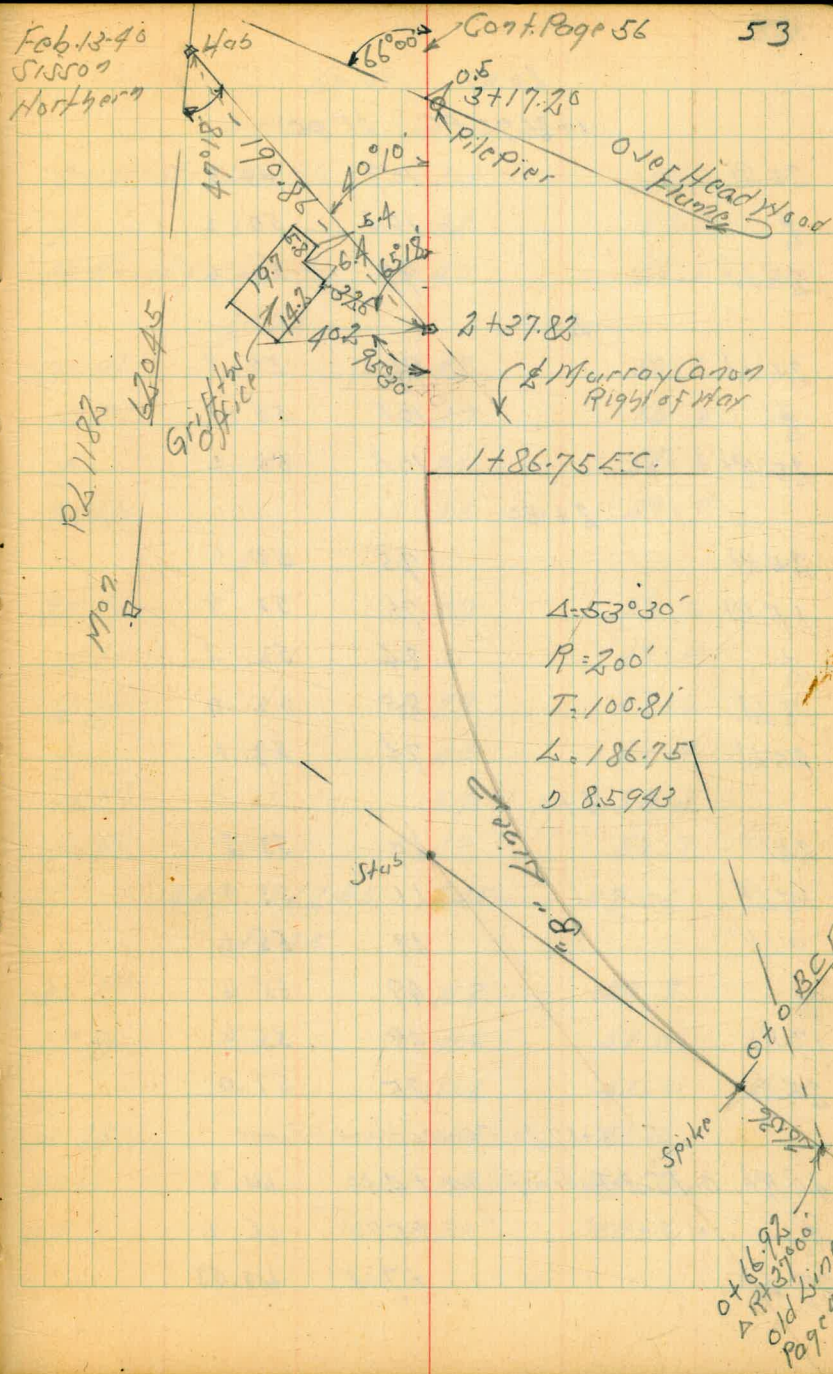 Feb. 13-40
Sisson
Northern
Hub
66°00'
Cont. Page 56
53
0.5
3+17.20
Pile Pier
Over Head Wood
Flume
47°18'
190.86
40°10'
5.4
5.8
6.4
65°18'
19.7
14.2
32.6
40.2
95°30'
2+37.82
Griffiths
Office
₵ Murray Canon
Right of Way
1+86.75 E.C.
P.L. 1182
62045
Mon
Δ=53°30'
R=200'
T=100.81'
L=186.75
D 8.5943
"B" Line
Stub
0+0 B.C.
Spike
0+66.92
Δ Rt 37°00'
Old Line
Page